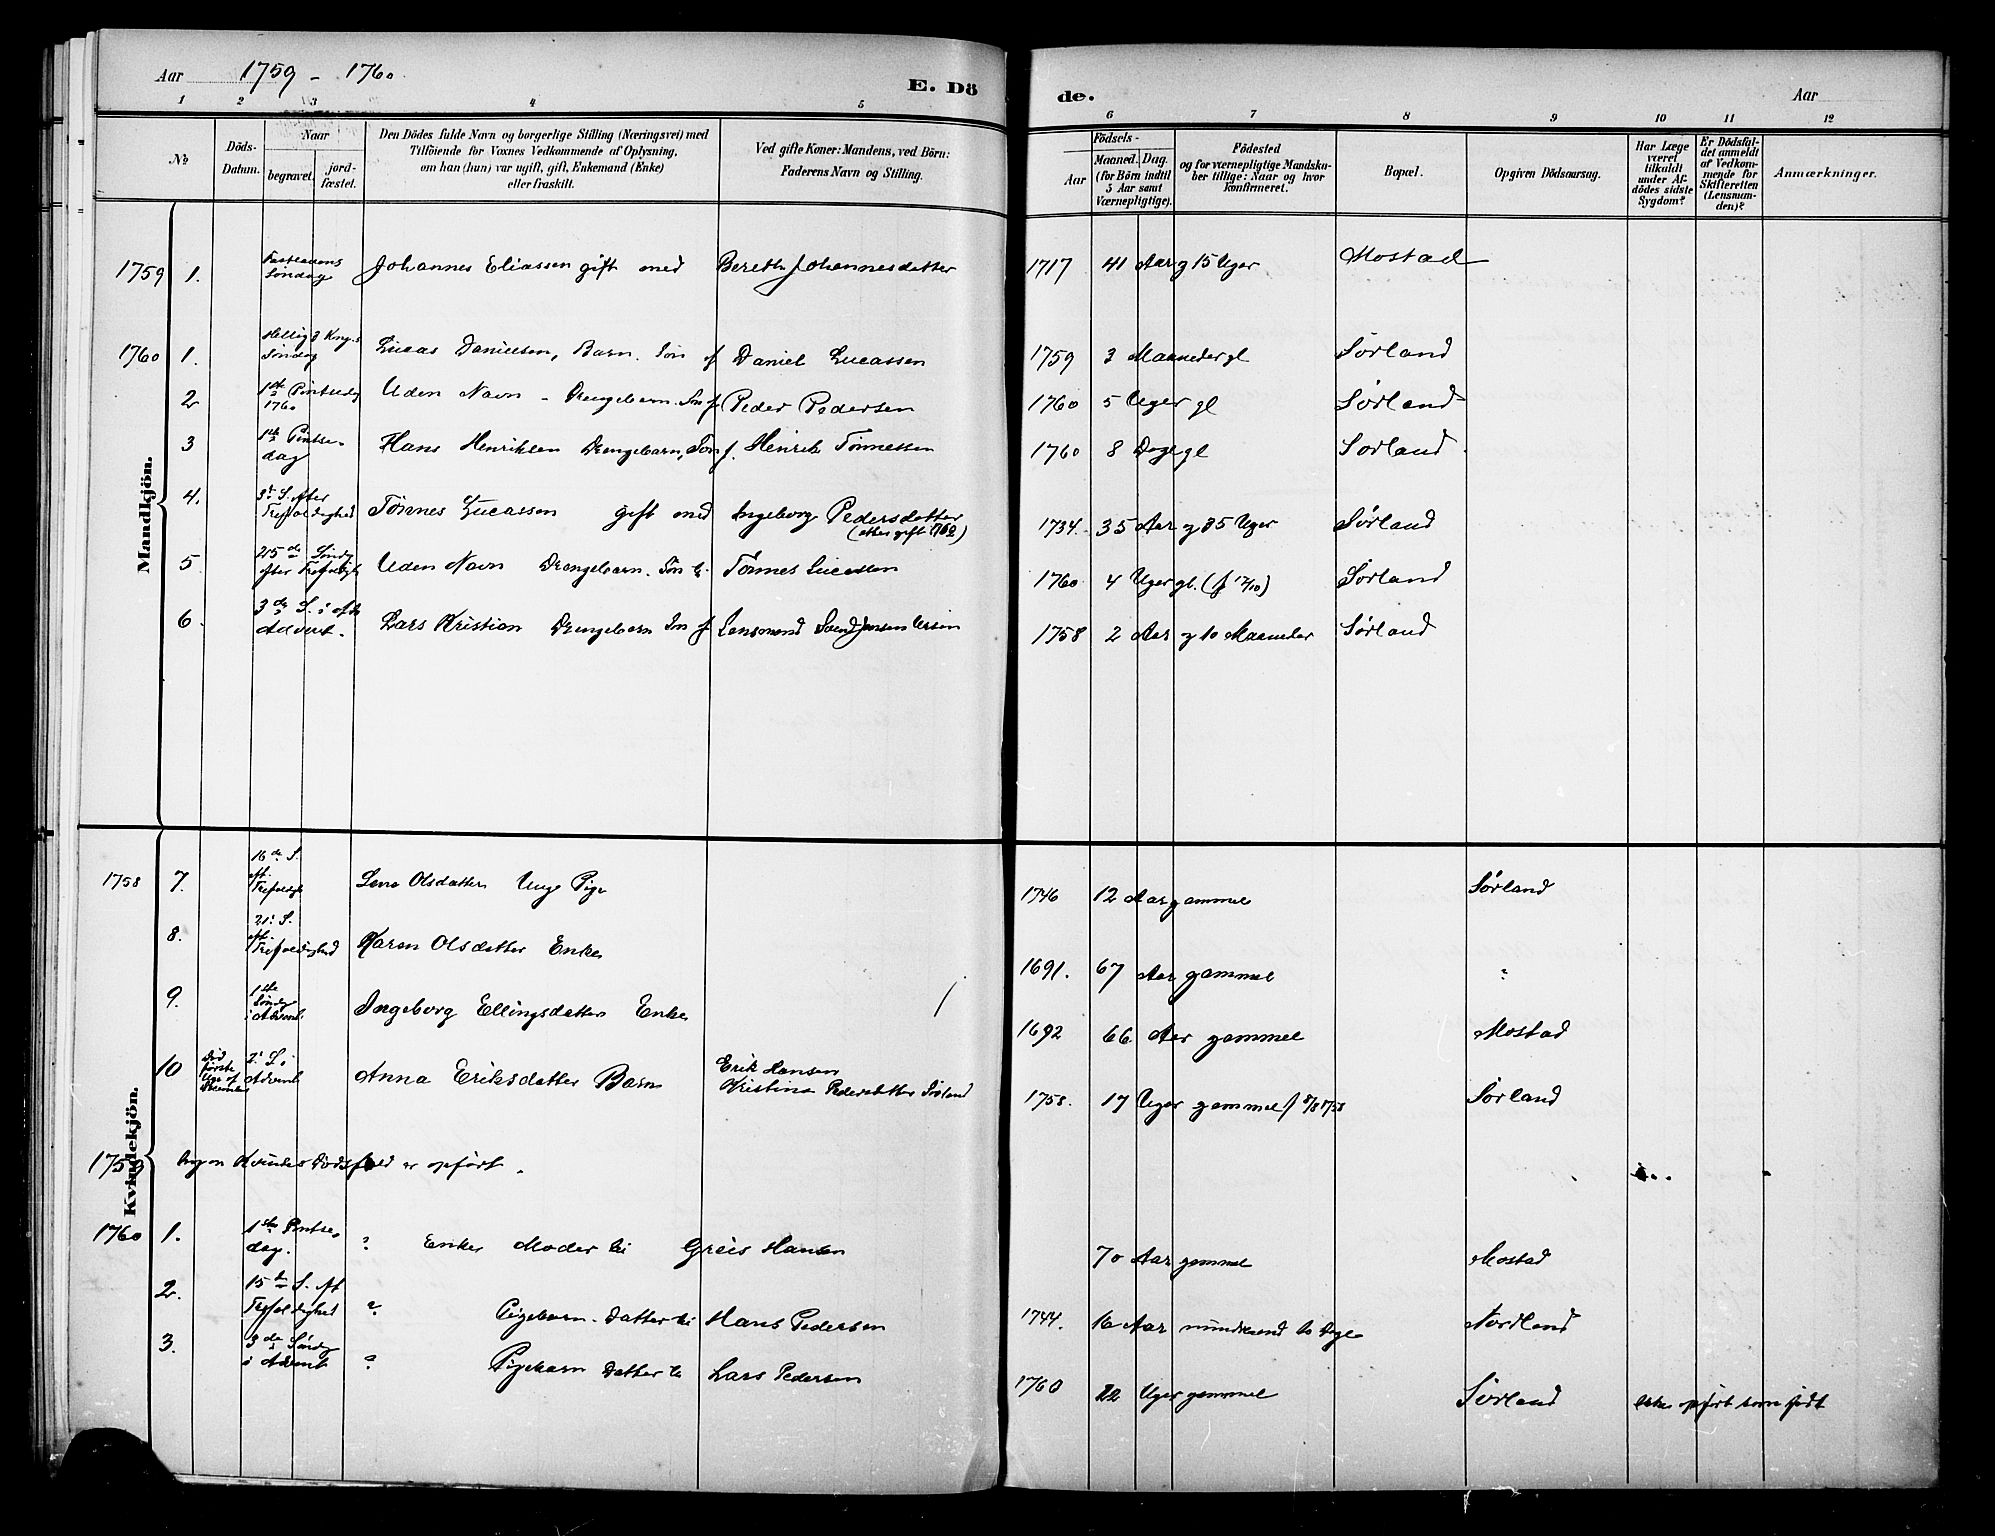 Aar 1759 - 1760
E. Dö
de.
Aar
1 2 3 4 5
6 7 8 9 10 11 12
No
Döds-Datum.
Naar
begravet.
jord-fæstet.
Den Dödes fulde Navn og borgerlige Stilling (Næringsvei) med
Tilföiende for Voxnes Vedkommende af Oplysning,
om han (hun) var ugift, gift, Enkemand (Enke)
eller fraskilt.
Ved gifte Koner: Mandens, ved Börn:
Faderens Navn og Stilling.
Födsels-
Aar
Maaned. Dag.
(for Börn indtil
5 Aar samt
Værnepligtige).
Födested
og for værnepligtige Mandska-
ber tillige: Naar og hvor
konfirmeret.
Bopæl.
Opgiven Dödsaarsag.
Har Læge
været
tilkaldt
under Af-
dödes sidste
Sygdom?
Er Dödsfal-
det anmeldt
af Vedkom-
mende for
Skifteretten
(Lensman-
den)?
Anmærkninger.
Mandkjön.
1759 1. Fastelavns Søndag Johannes Eliassen gift med Bereth Johannesdatter 1717 41 Aar g 15 Uger Mostad
1760 1. Hellig 3 Kng.s Søndag Lucas Danielsen, Barn. Søn af Daniel Lucassen 1759 3 Maaneder gl Sørland
2 1ste Pintsedg 1760 Uden Navn - Drengebarn. Søn af Peder Pedersen 1760 5 Uger gl Sørland
3 1ste Pintse-dag Hans Henriksen Drengebarn, Søn f. Henrik Tønnessen 1760 8 Dage gl Sørland
4. 3die S. efter Trefoldighed Tønnes Lucassen gift med Ingeborg Pedersdatter 1734. 35 Aar g 35 Uger Sørland
(atter gift 1760)
5 Søndg after Trefoldigh Uden Navn Drengebarn. Søn ti Tønnes Lucassen 1760 4 Uger gl. (f 17/10) Sørland
6. 3de S. i Advent. Lars Kristian Drengebarn Søn af Lensmand Svend Jensen 1758 2 Aar g 10 Maaneder Sørland
Kvindekjön.
1758 7. 16de S. eft. Trefoldigh Lena Olsdatter Unge Pige 1746 12 Aar gammel Sørland
8. 21. S. eft. Trefoldighed Karen Olsdatter Enke 1691. 67 Aar gammel ?
9. 1ste Søndg i Advent. Ingeborg Ellingsdatter Enke 1692 66 Aar gammel Mostad
10 Død første Uge af December 2. S. i Advent Anna Eriksdatter Barn Erik Hansen
Kristina Pedersdatter Sørland 1758. 17 Uger gammel f 8/8 1758 Sørland
1759 Ingen Kvindes Dødsfald er opført.
1760 1. 1ste Pintse-dag. ? Enke Moder til Greis Hansen 70 Aar gammel Mostad
2. 15de S. eft Trefoldighed ? Pigebarn. Datter ti Hans Pedersen 1744. 16 Aar mindkaend 10 Dage Nordland
3. 3de Søndg i Advent ? Pigebarn Datter ti Lars Pedersen 1760 22 Uger gammel Sørland ikke opført som født